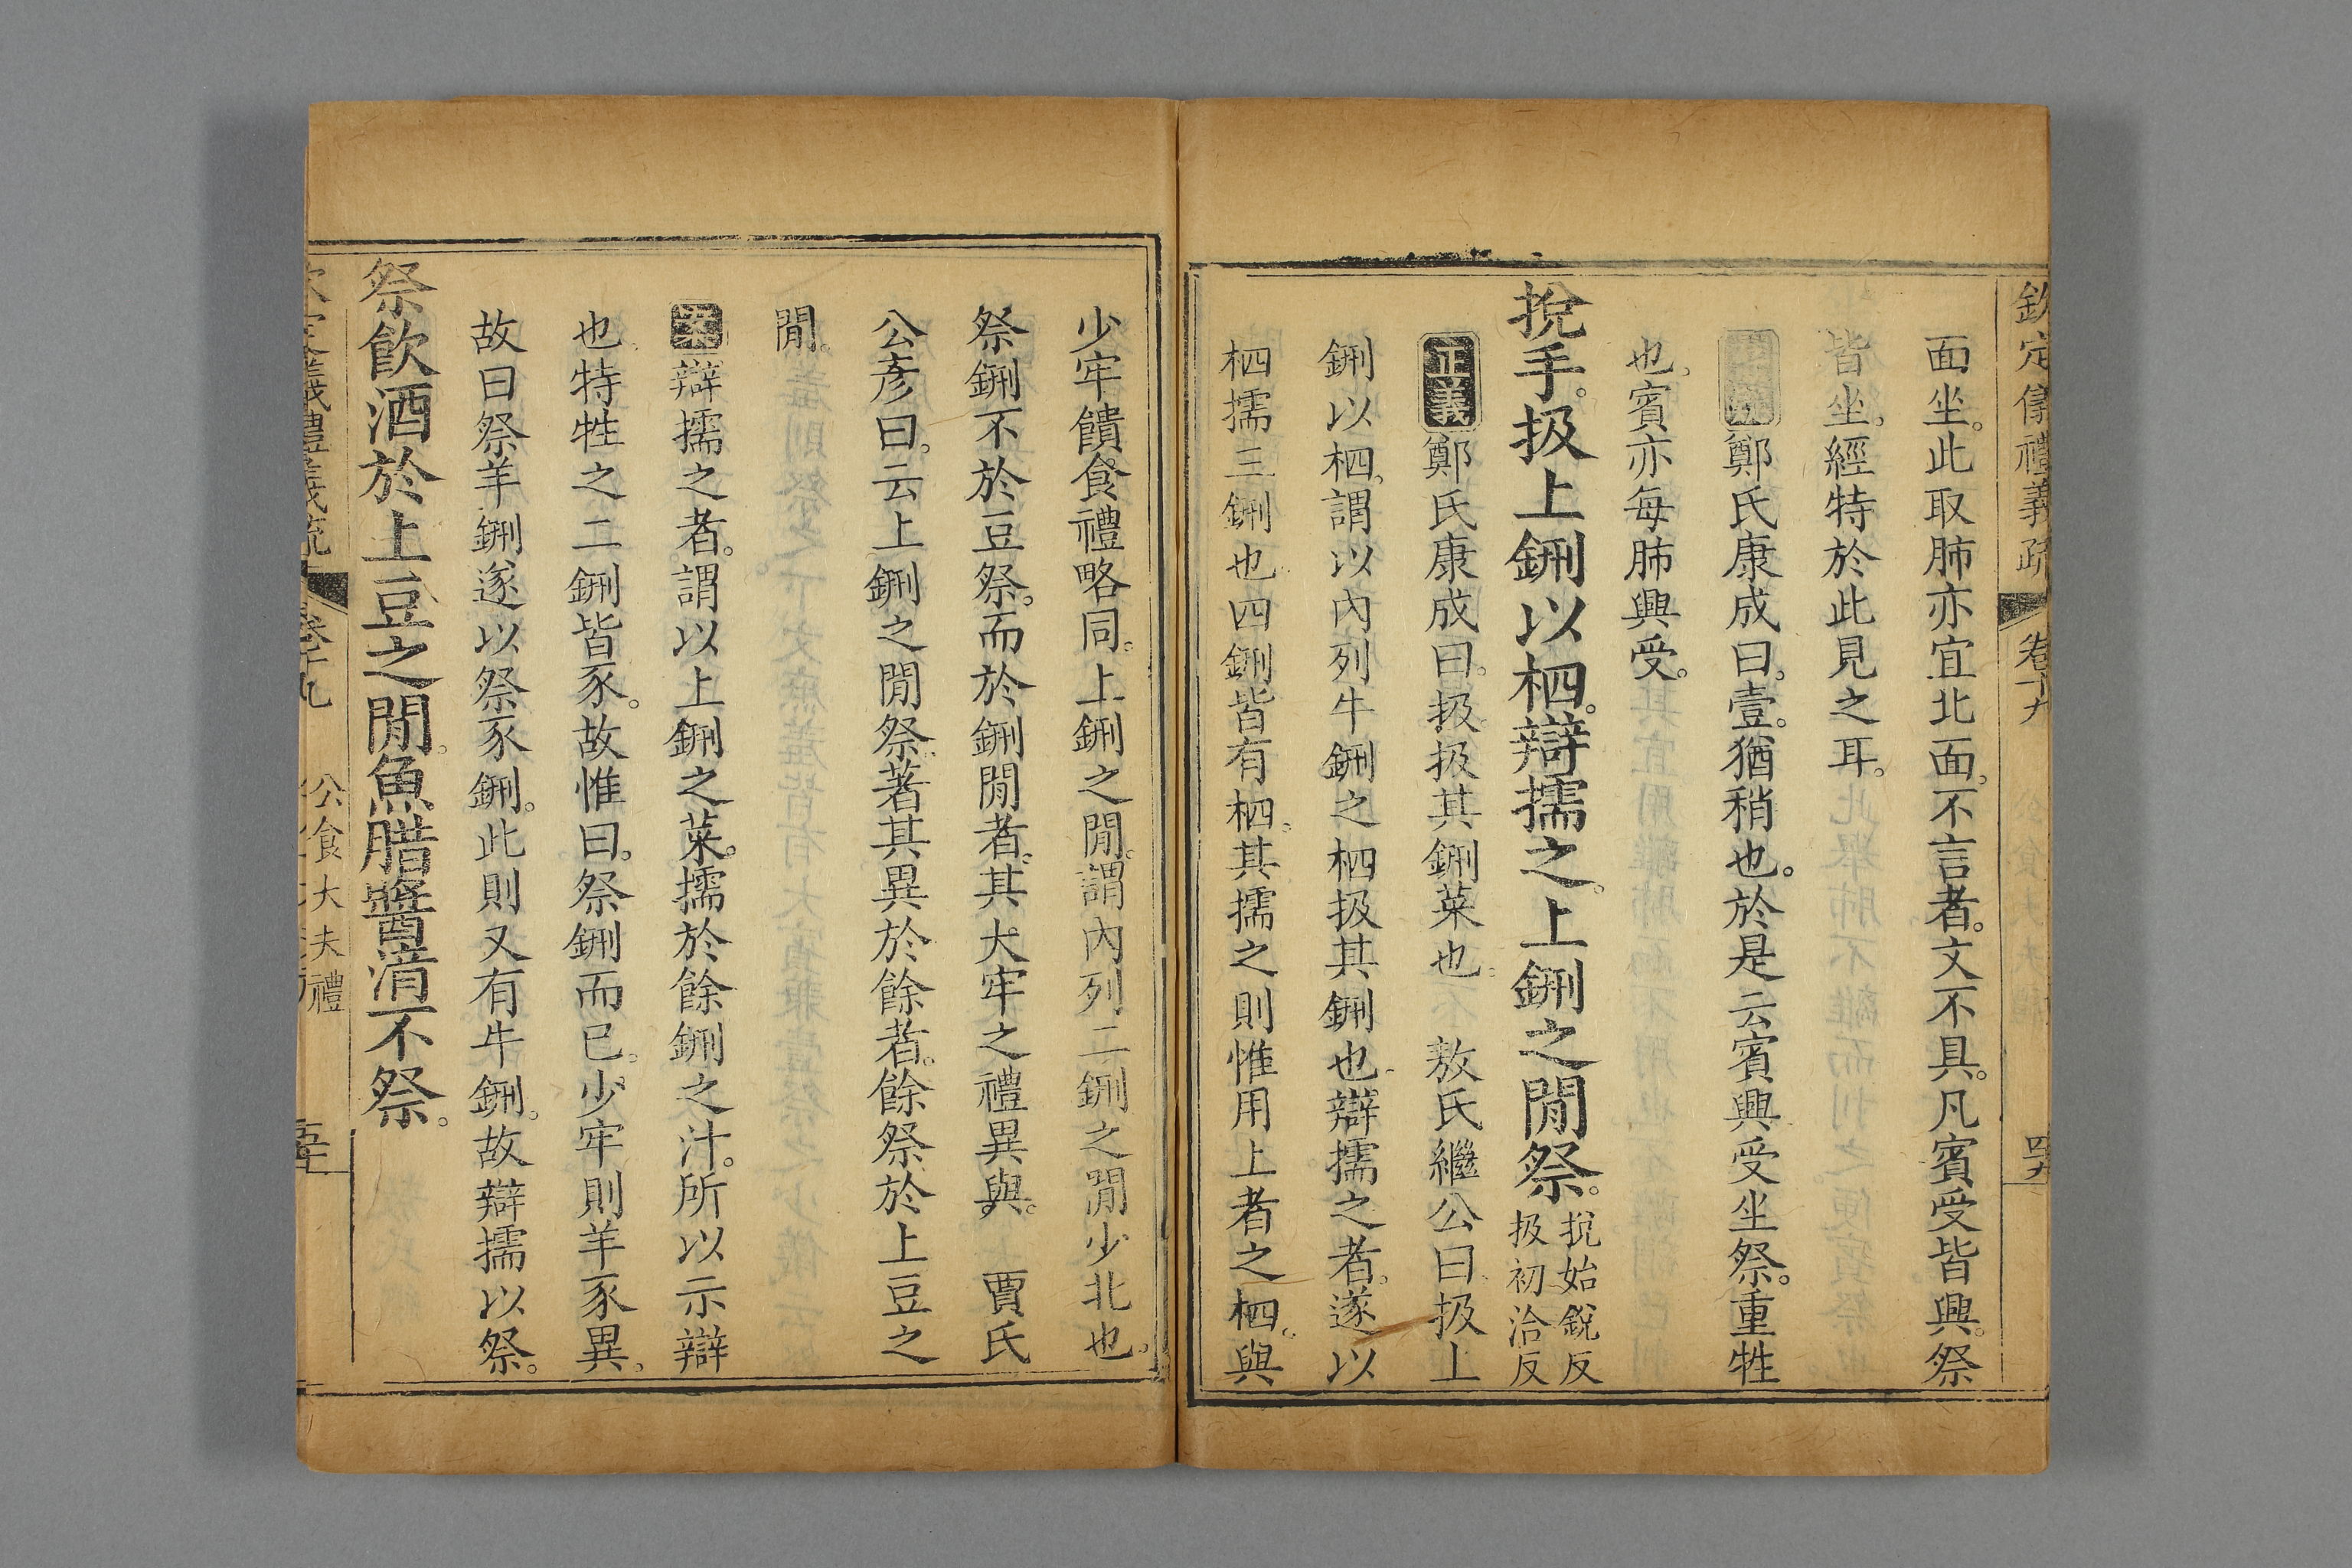 欽定儀禮義疏 卷十九 四九
面坐。此取肺亦宜北面。不言者。文不具。凡賓受皆興。祭
皆坐。經特於此見之耳。
鄭氏康成曰。壹。猶稍也。於是云賓興受坐祭。重牲
也。賓亦每肺興受。
挩手。扱上鉶以柶。辯擩之。上鉶之閒祭。挩始銳反 扱初洽反
正義 鄭氏康成曰。扱。扱其鉶菜也。 敖氏繼公曰。扱上
鉶以柶。謂以內列牛鉶之柶扱其鉶也。辯擩之者。遂以
柶擩三鉶也。四鉶皆有柶。其擩之則惟用上者之柶。與
少牢饋食禮略同。上鉶之閒。謂內列二鉶之閒少北也。
祭鉶不於豆祭。而於鉶閒者。其大牢之禮異與。 賈氏
公彥曰。云上鉶之閒祭。著其異於餘者。餘祭於上豆之
閒。
案 辯擩之者。謂以上鉶之菜。擩於餘鉶之汁。所以示辯
也。特牲之二鉶皆豕。故惟曰。祭鉶而已。少牢則羊豕異。
故曰祭羊鉶遂以祭豕鉶。此則又有牛鉶。故辯擩以祭。
祭飲酒於上豆之閒。魚腊醬湆不祭。
欽定儀禮義疏 卷十九 公食大夫禮 五十